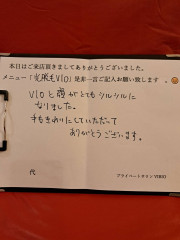 本日はご来店頂きましてありがとうございました。
メニュー「光脱毛VIO」是非一言ご記入お願い致します
VIOと腕がとてもツルツルに
なりました。
すもきれいにしていただいて
ありがとうございます。
代
プライベートサロン VIRIO